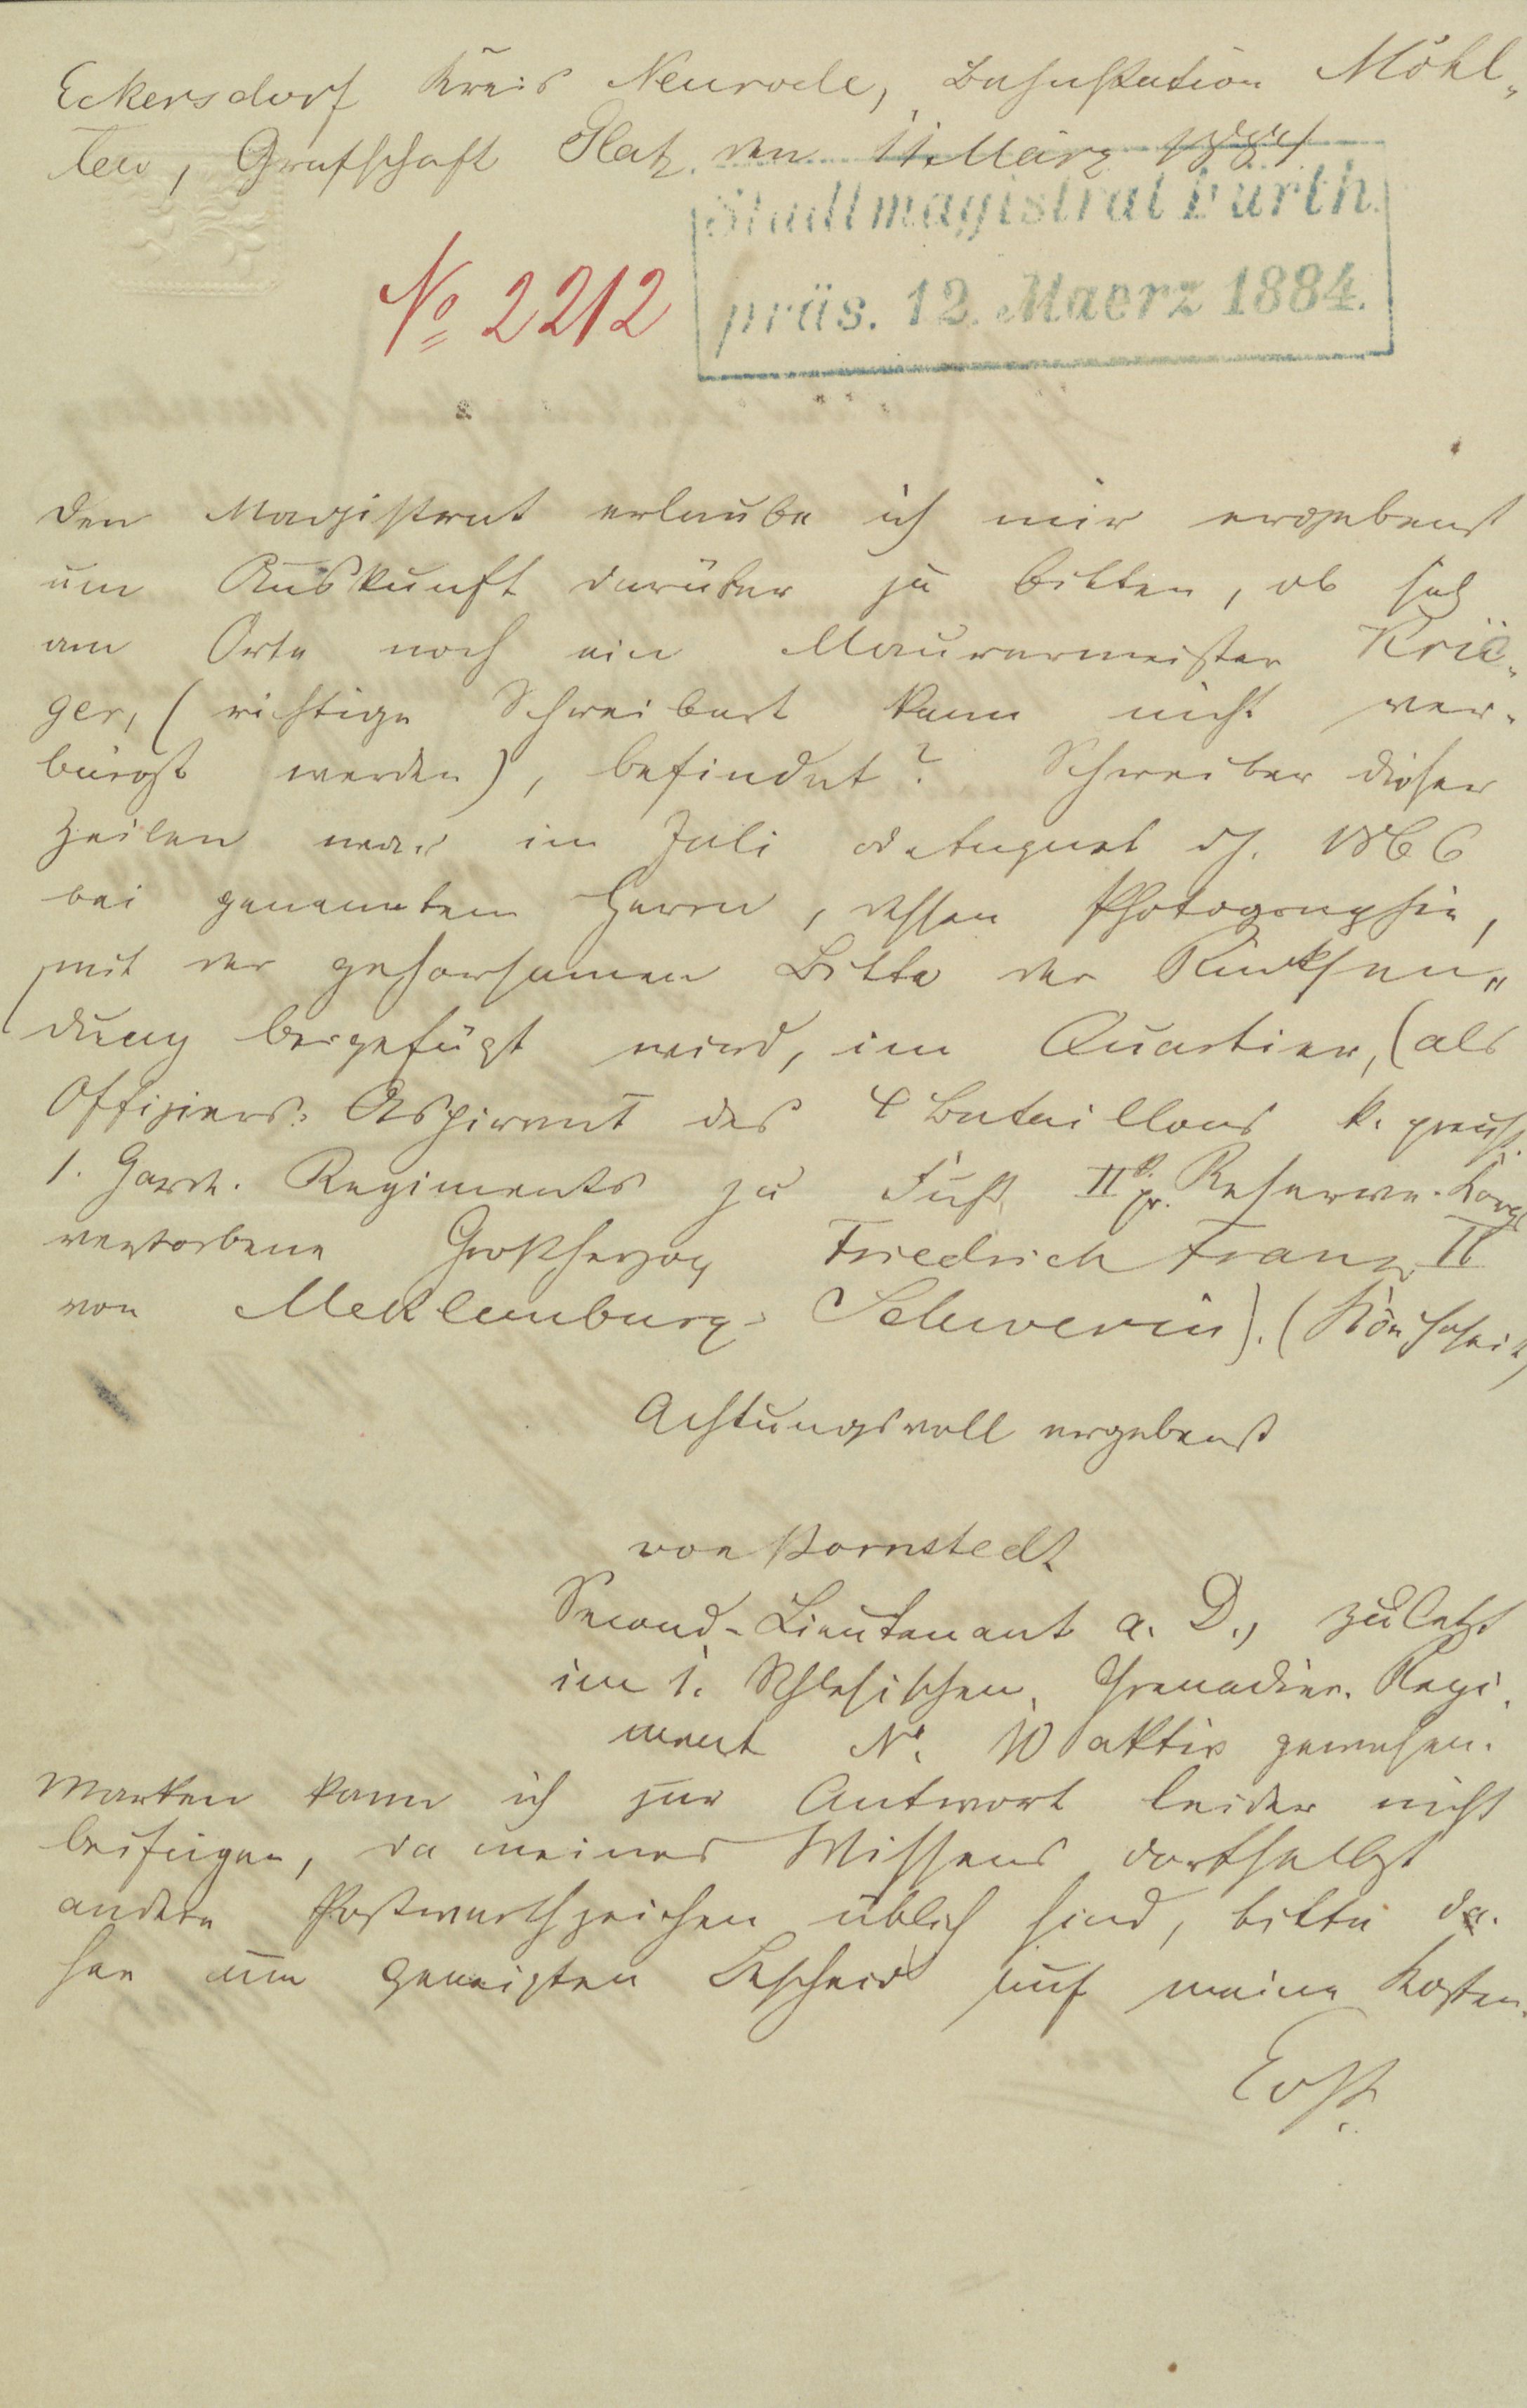 Eckersdorf Kreis Neurode, Bahnstation Möhl-
ten, Grafschaft Glatz den 11. März 1884
Stadtmagistrat Fürth.
präs. 12. Maerz 1884.
No 2212
Den Magistrat erlaube ich mir ergebenst
um Auskunft darüber zu bitten, ob sich
am Orte noch ein Maurermeister Krie-
ger, (richtige Schreibart kann nicht ver-
bürgt werden), befindet? Schreiber dieser
Zeilen war im Juli od August 1866
bei genanntem Herrn, dessen Photographie,
mit der gehorsamen Bitte der Rücksen-
dung beigefügt wird, im Quartier, (als
Offiziers-Aspirant des 4 Bataillons k. preuß.
1. Garde-Regiments zu Fuß, II k. pr. Reserve-Korps
verstorbene Großherzog Friedrich Franz II
von Meklenburg-Schwerin). (Kön Hoheit)
Achtungsvoll ergebenst
von Bornstedt
Second-Lieutenant a. D., zuletzt
im 1. Schlesischen Grenadier-Regi-
ment No. 10 aktiv gewesen.
Marken kann ich zur Antwort leider nicht
beifügen, da meines Wissens dortselbst
andere Postwerthzeichen üblich sind, bitte da-
her um geneigten Bescheid auf meine Kosten.